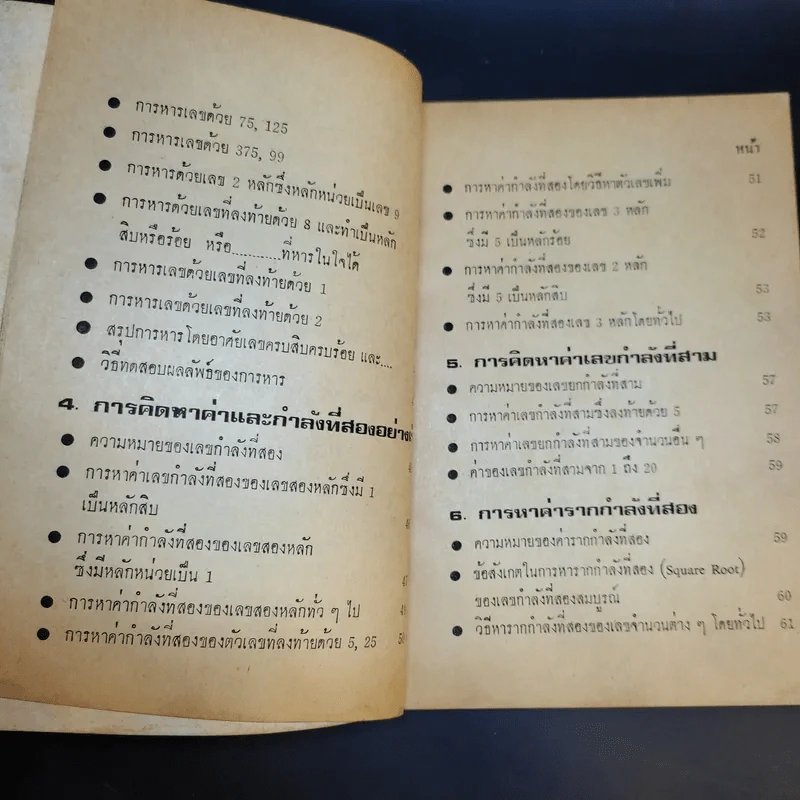 ● การหารเลขด้วย 75, 125
● การหารเลขด้วย 375, 99
● การหารด้วยเลข 2 หลักซึ่งหลักหน่วยเป็นเลข 9
● การหารด้วยเลขที่ลงท้ายด้วย 8 และทำเป็นหลัก
สิบหรือร้อย หรือ............ที่หารในใจได้
● การหารเลขด้วยเลขที่ลงท้ายด้วย 1
● การหารเลขด้วยเลขที่ลงท้ายด้วย 2
● สรุปการหารโดยอาศัยเลขครบสิบครบร้อย และ....
● วิธีทดสอบผลลัพธ์ของการหาร
4. การคิดหาค่าและกำลังที่สองอย่าง
● ความหมายของเลขกำลังที่สอง
● การหาค่าเลขกำลังที่สองของเลขสองหลักซึ่งมี 1
เป็นหลักสิบ
● การหาค่ากำลังที่สองของเลขสองหลัก
ซึ่งมีหลักหน่วยเป็น 1 47
● การหาค่ากำลังที่สองของเลขสองหลักทั่ว ๆ ไป
● การหาค่ากำลังที่สองของตัวเลขที่ลงท้ายด้วย 5, 25
หน้า
● การหาค่ากำลังที่สองโดยวิธีหาตัวเลขเพิ่ม 51
● การหาค่ากำลังที่สองของเลข 3 หลัก
ซึ่งมี 5 เป็นหลักร้อย 52
● การหาค่ากำลังที่สองของเลข 2 หลัก
ซึ่งมี 5 เป็นหลักสิบ 53
● การหาค่ากำลังที่สองเลข 3 หลักโดยทั่วไป 53
5. การคิดหาค่าเลขกำลังที่สาม
● ความหมายของเลขยกกำลังที่สาม 57
● การหาค่าเลขกำลังที่สามซึ่งลงท้ายด้วย 5 57
● การหาค่าเลขยกกำลังที่สามของจำนวนอื่น ๆ 58
● ค่าของเลขกำลังที่สามจาก 1 ถึง 20 59
6. การหาค่ารากกำลังที่สอง
● ความหมายของค่ารากกำลังที่สอง 59
● ข้อสังเกตในการหารากกำลังที่สอง (Square Root)
ของเลขกำลังที่สองสมบูรณ์ 60
● วิธีหารากกำลังที่สองของเลขจำนวนต่าง ๆ โดยทั่วไป 61